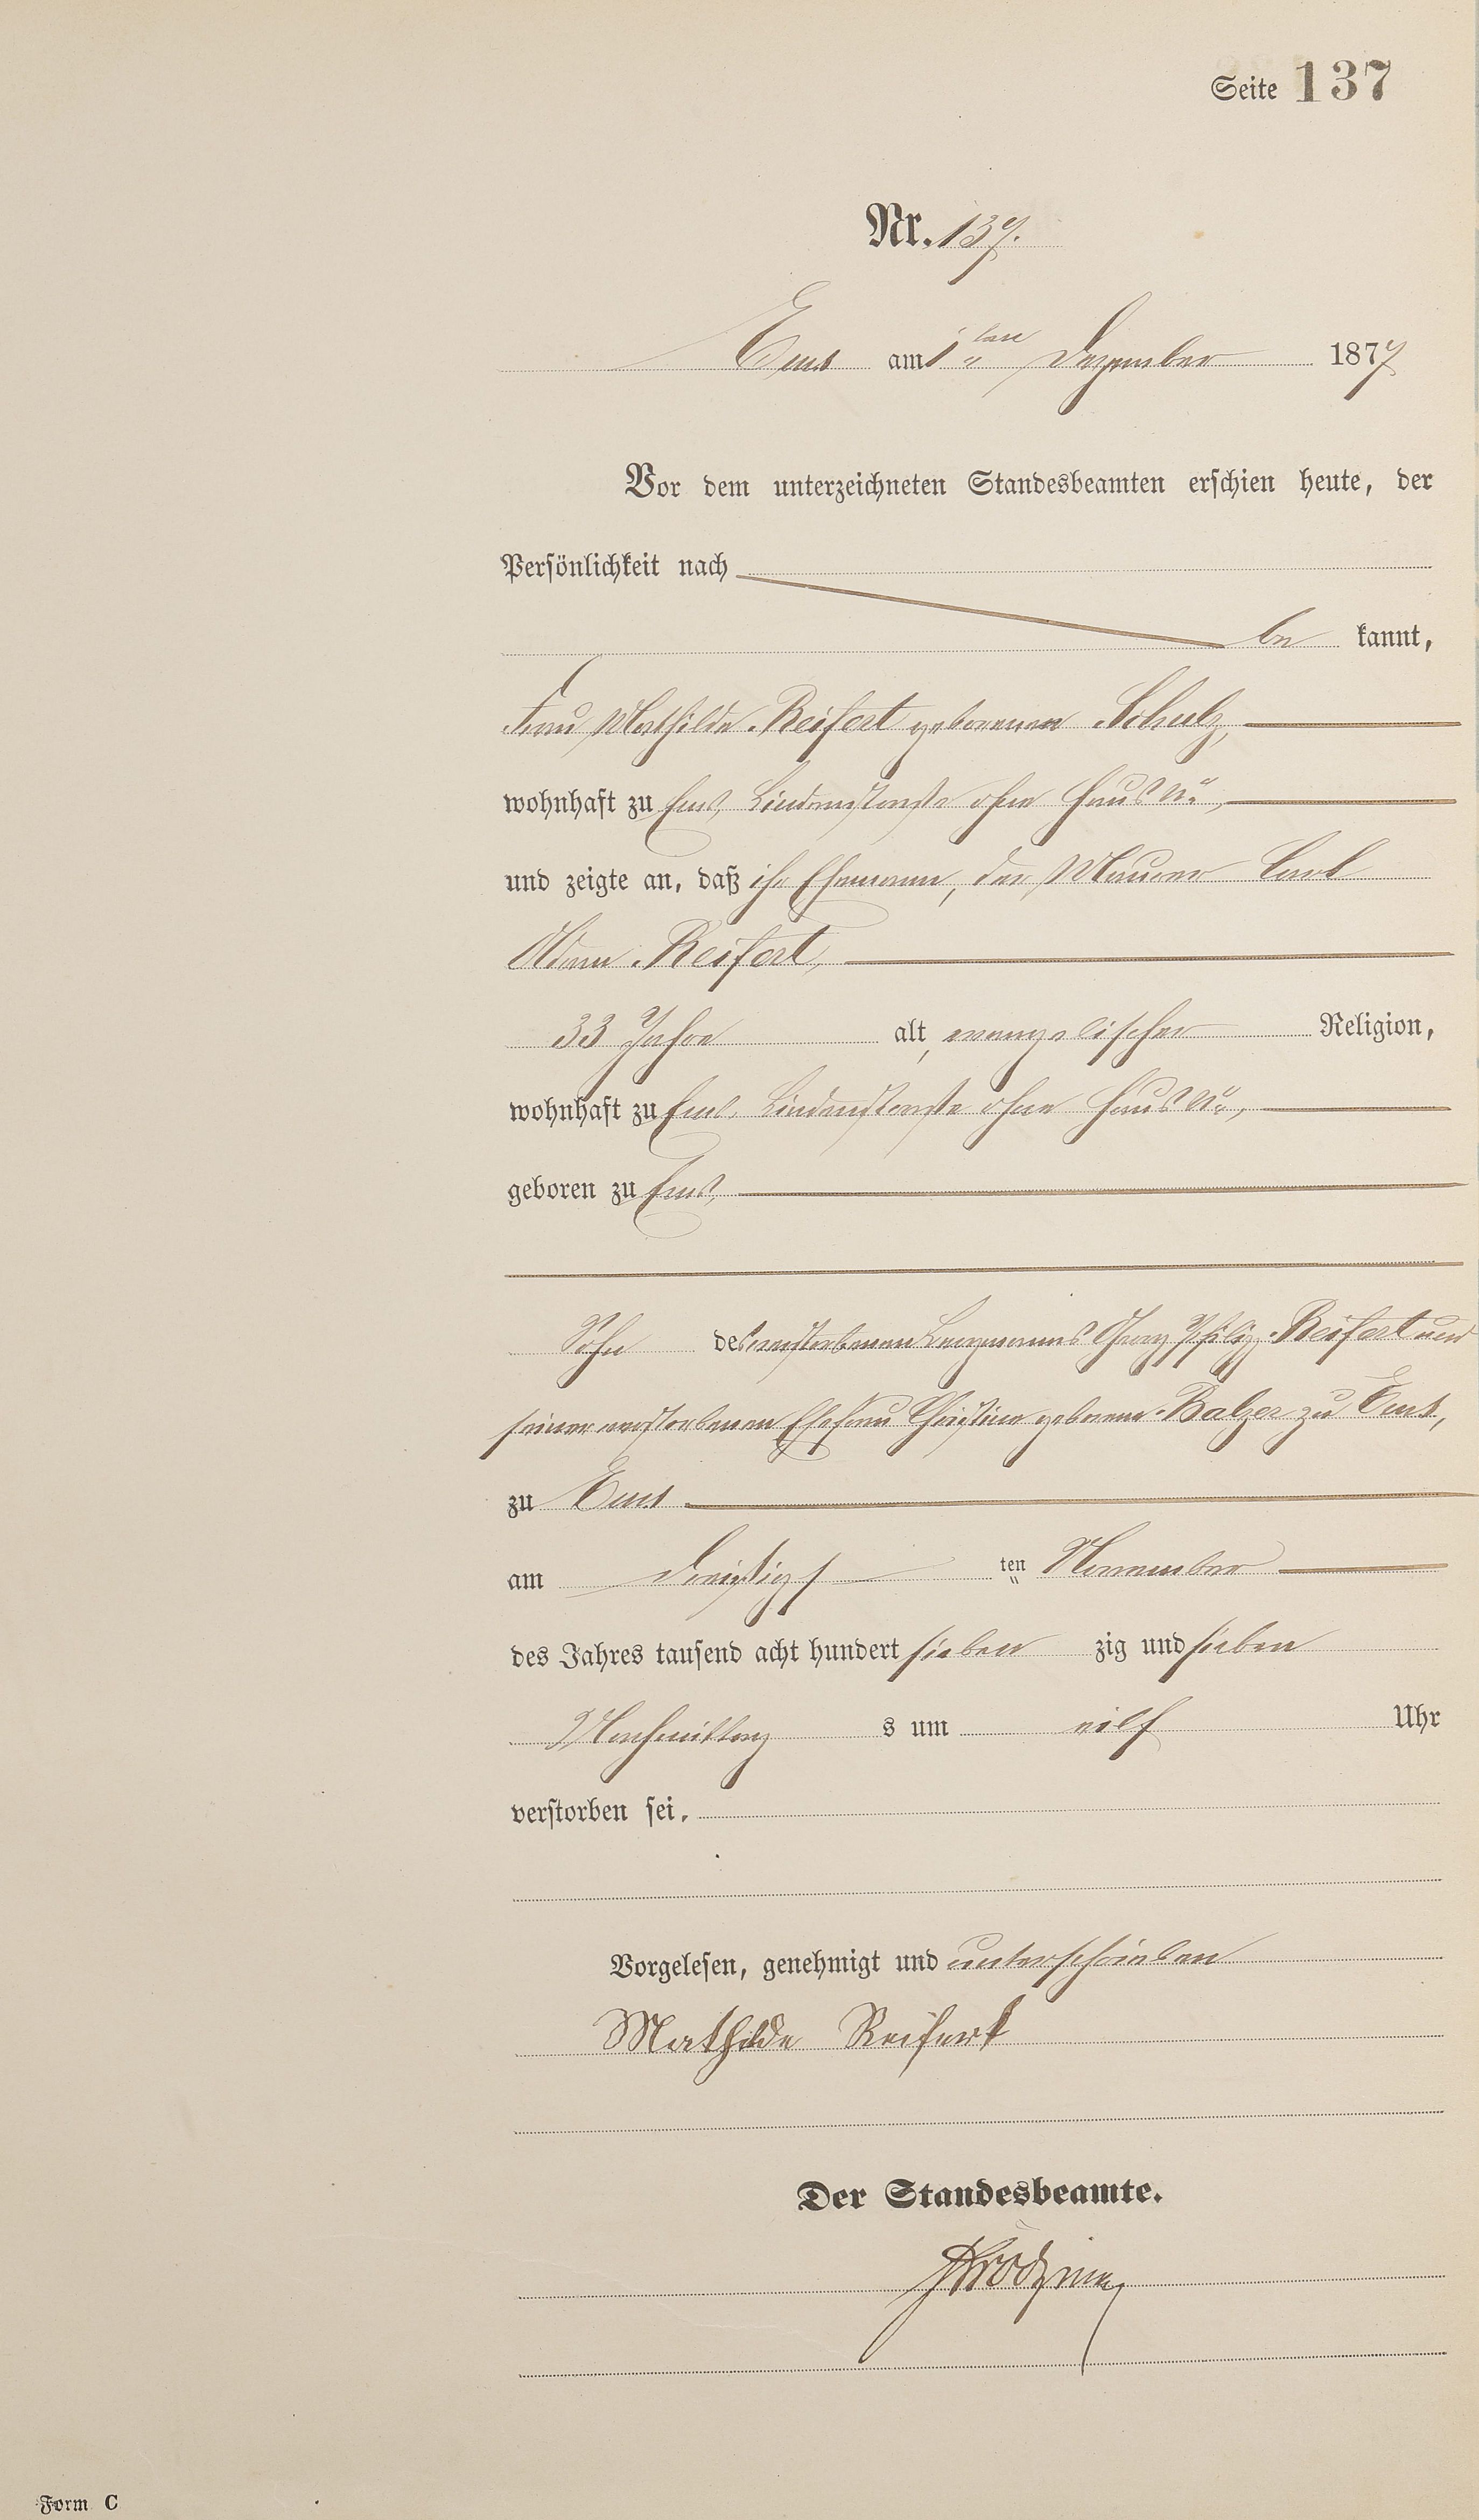 Seite 137
Nr. 137.
Ems am 1ten Dezember 1877
Vor dem unterzeichneten Standesbeamten erschien heute, der
Persönlichkeit nach
be kannt,
Frau Mathilde Reifert geborenen Schulz,
wohnhaft zu Ems, Lindenstraße ohne Haus No,
und zeigte an, daß ihr Ehemann, der Maurer Carl
Adam Reifert,
33 Jahre alt, evangelischer Religion,
wohnhaft zu Ems, Lindenstraße ohne Haus No,
geboren zu Ems,
Sohn des verstorbenen Bergmanns Georg Philip Reifert und
seiner verstorbenen Ehefrau Christine geborene Balzer zu Ems,
zu Ems
am dreißigs ten November
des Jahres tausend acht hundert sieben zig und sieben
Nachmittag s um eilf Uhr
verstorben sei.
Vorgelesen, genehmigt und unterschrieben
Mathilde Reifert
Der Standesbeamte.
Form C